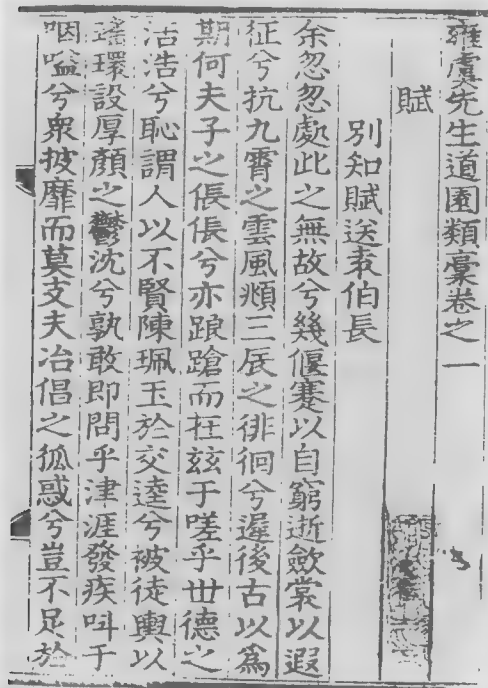 雍虞先生道園類稾卷之一
賦
別知賦送袁伯長
余忽忽處此之無故兮幾偃蹇以自窮逝斂裳以遐
征兮抗九霄之雲風頫三辰之徘徊兮遲後古以爲
期何夫子之倀倀兮亦踉蹌而在玆于嗟乎世德之
沽浩兮恥謂人以不賢陳珮玉於交逵兮被徒輿以
瑤環設厚顏之鬱沈兮孰敢即問乎津涯發疾呌于
咽嗌兮衆披靡而莫支夫冶倡之狐惑兮豈不足於